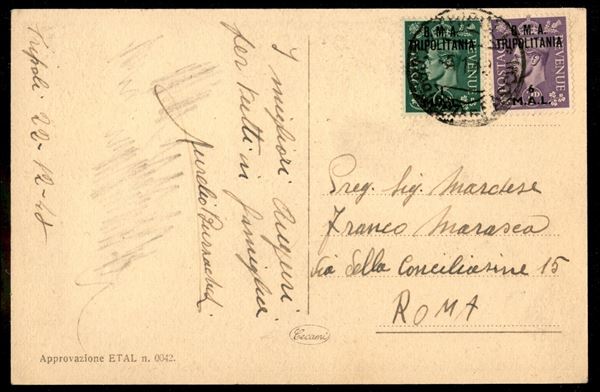 Tripoli 22-12-48
I migliori Auguri
per tutti in famiglia.
Aurelio
B.M.A.
TRIPOLITANIA
M.A.L.
POSTAGE
REVENUE
B.M.A.
TRIPOLITANIA
6
M.A.L.
POSTAGE
REVENUE
Preg. Sig. Marchese
Franco Marasca
Via della Conciliazione 15
ROMA
Cecami
Approvazione ETAL n. 0042.